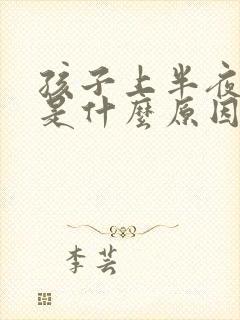 孩子上半夜
是什麼原因
李芸